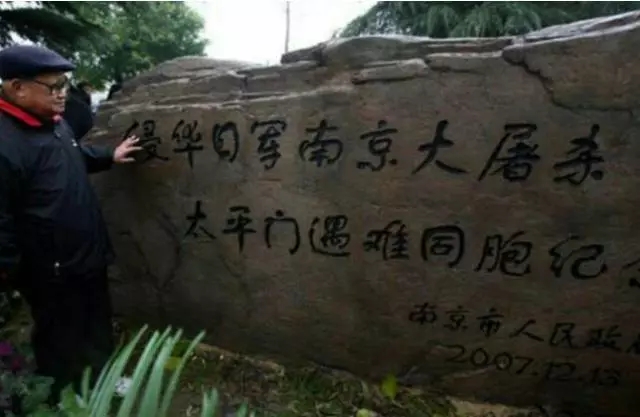 侵华日军南京大屠杀
太平门遇难同胞纪念
南京市人民政府
2007.12.13